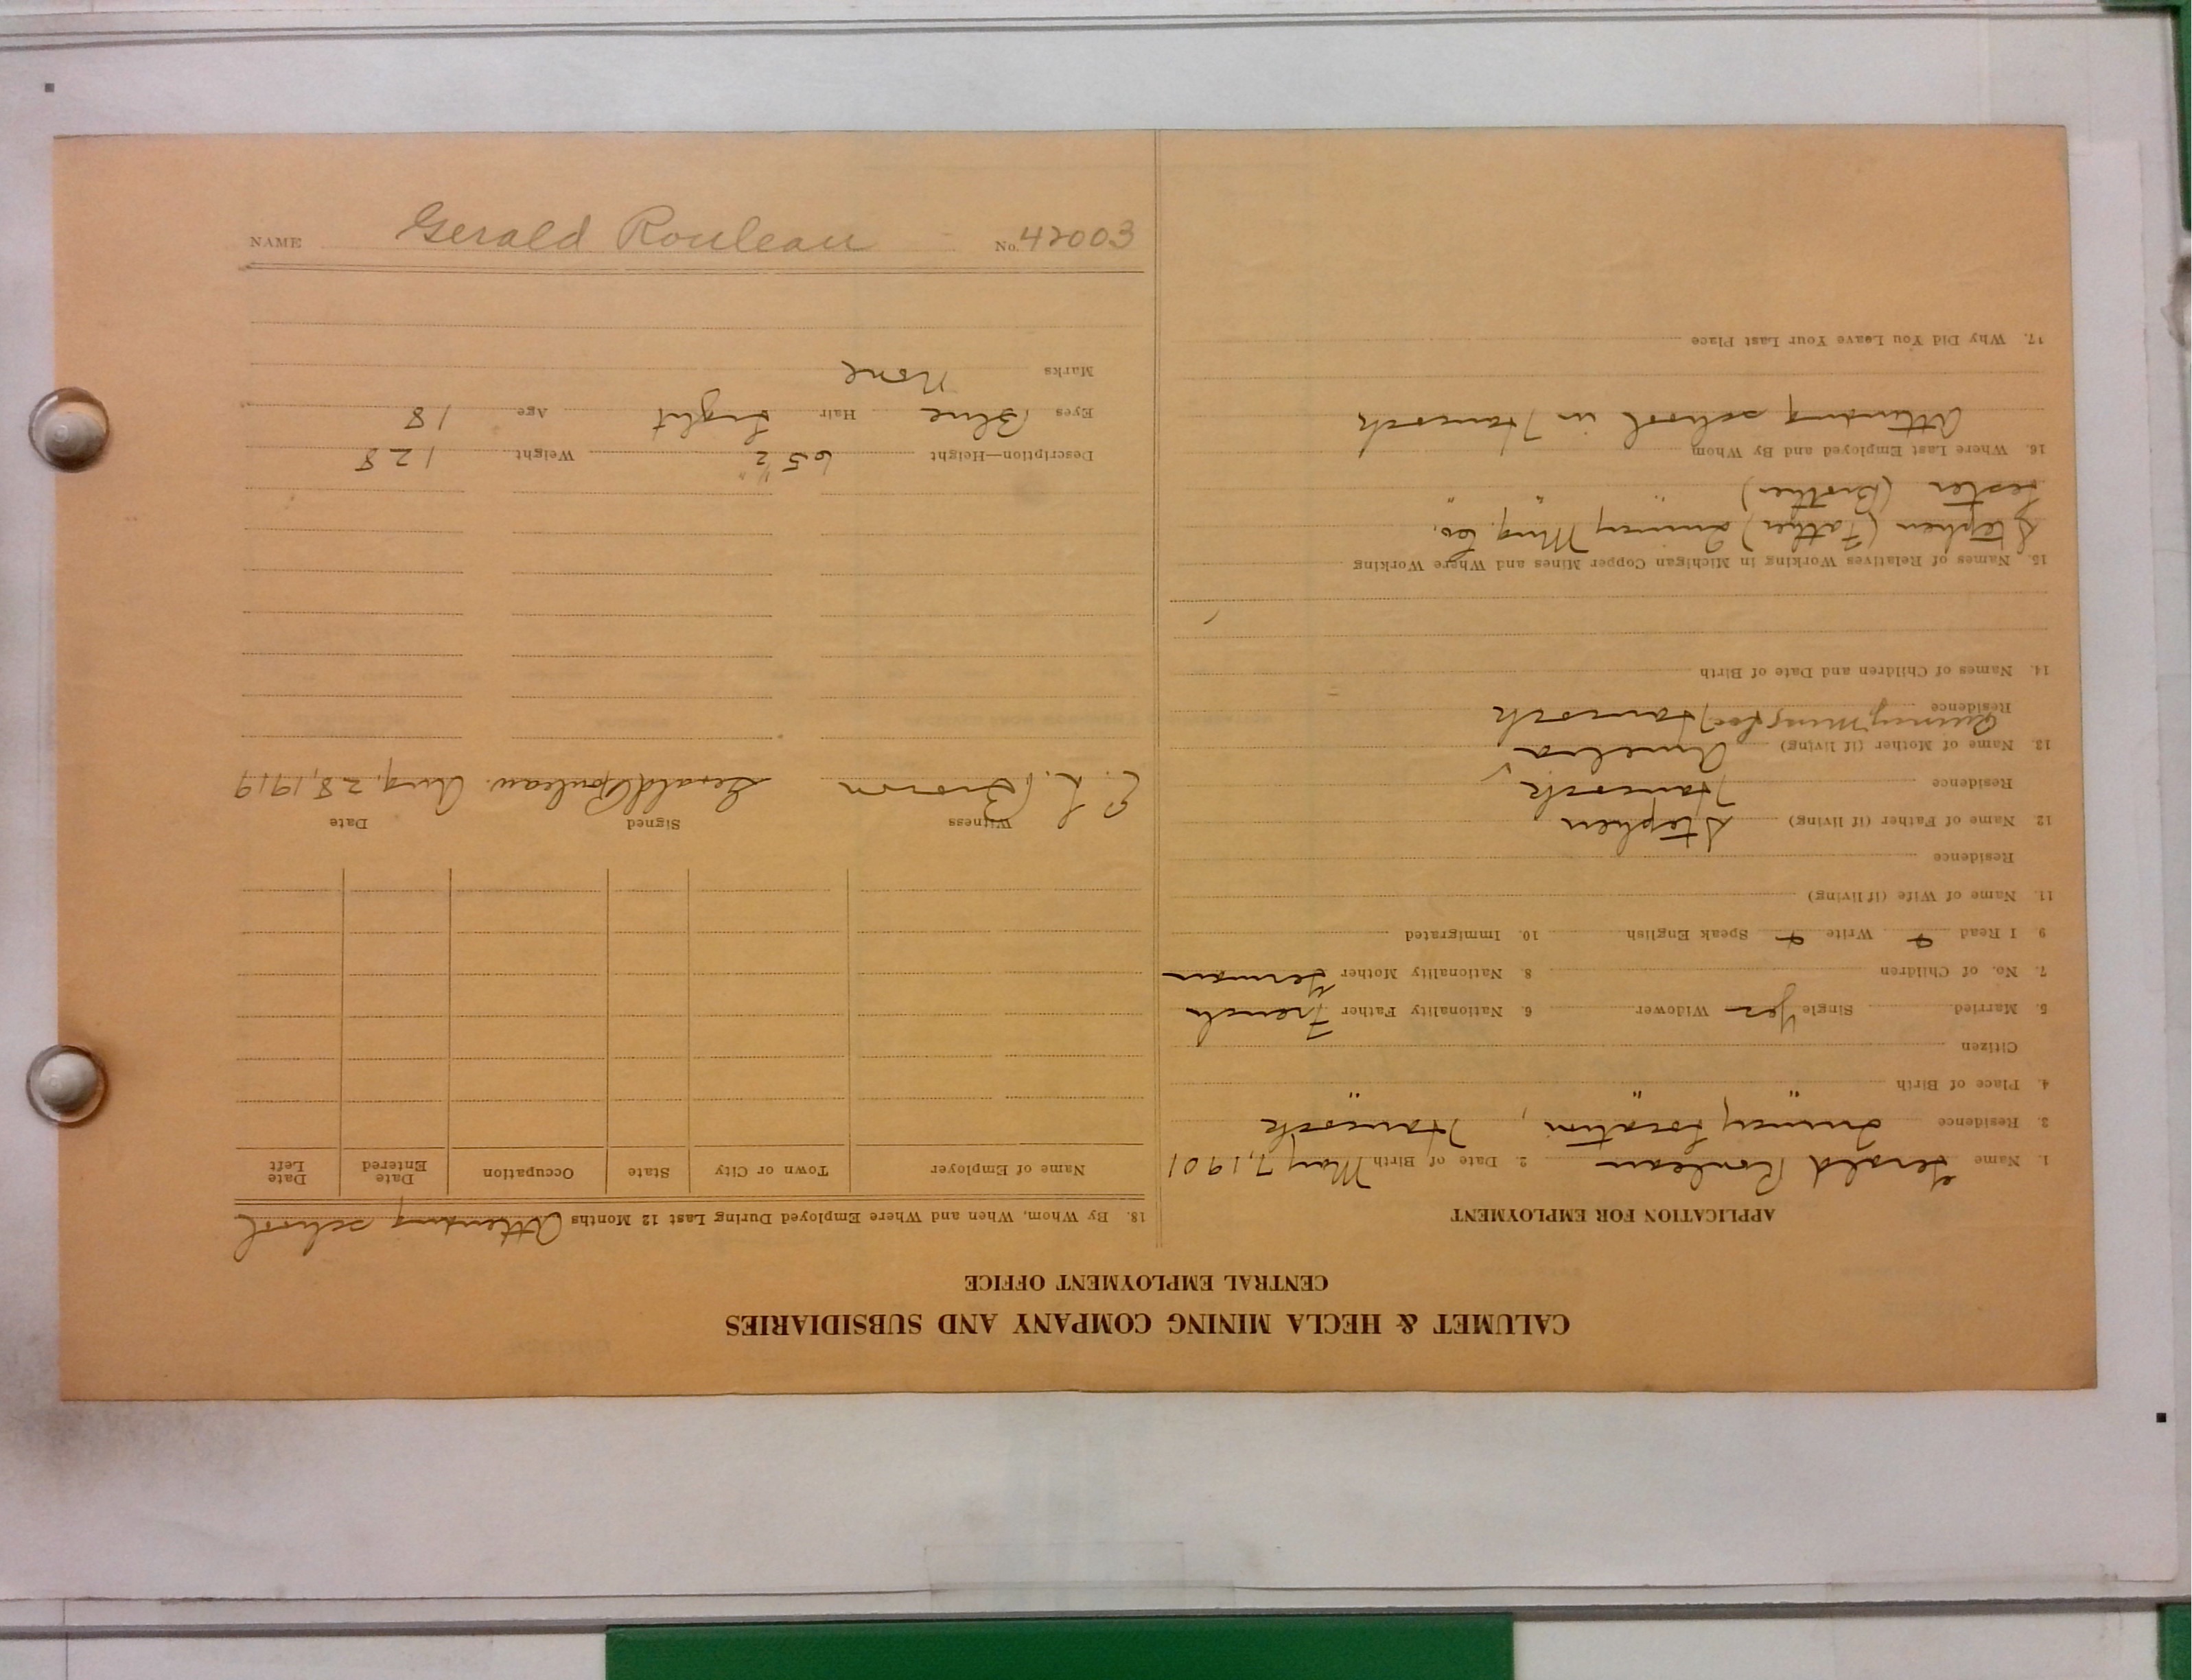 CALUMET & HECLA MINING COMPANY AND SUBSIDIARIES
CENTRAL EMPLOYMENT OFFICE
APPLICATION FOR EMPLOYMENT
1. Name Gerald Rouleau 2. Date of Birth May 7, 1901
3. Residence Quincy Location, Hancock
4. Place of Birth " " "
Citizen
5. Married Single Yes Widower 6. Nationality Father French
7. No. of Children 8. Nationality Mother German
9 I Read Write Speak English 10. Immigrated
11. Name of Wife (if living)
Residence
12. Name of Father (if living) Stephen
Residence Hancock
13. Name of Mother (if living) Amelia
Residence Quincy Mining Loc, Hancock
14. Names of Children and Date of Birth
15. Names of Relatives Working in Michigan Copper Mines and Where Working
Stephen (Father) Quincy Mng. Co.
Lester (Brother) " "
16. Where Last Employed and By Whom
Attending school in Hancock
17. Why Did You Leave Your Last Place
18. By Whom, When and Where Employed During Last 12 Months Attending school
Name of Employer Town or City State Occupation Date Entered Date Left
Witness Signed Date
E. L. Brown Gerald Rouleau Aug. 28, 1919
Description—Height 65½" Weight 128
Eyes Blue Hair Light Age 18
Marks None
NAME Gerald Rouleau No. 42003